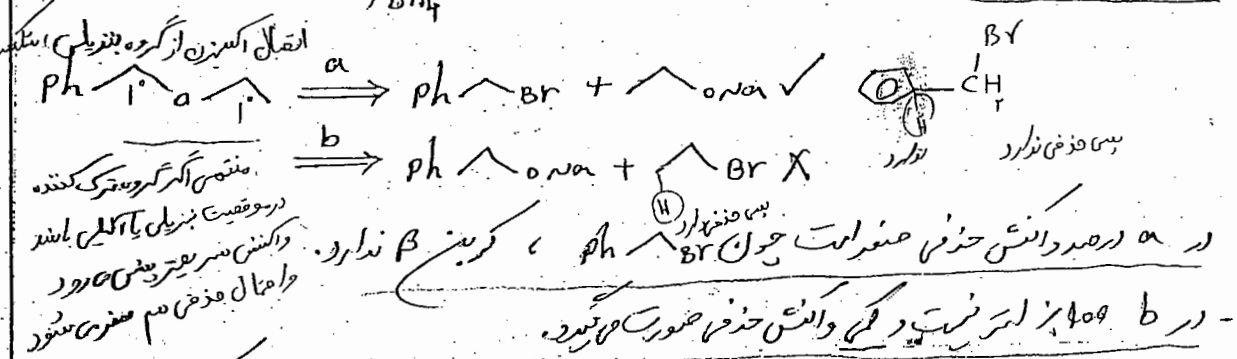 انتقال اکسیژن از گروه بنزیلی
Ph 1° O 1° a Ph Br + ONa ✓ Br CH۲ H
b Ph ONa + Br X H
ندارد پس حذفی ندارد
پس حذفی دارد
منتهی اگر گروه ترک کننده
در موقعیت بنزیلی یا آلیلی باشد
واکنش سریعتر پیش می‌رود
و احتمال حذفی هم صفر می‌شود
در a درصد واکنش حذفی صفر است چون Ph Br ، کربن β ندارد.
- در b ۱۰۰٪ اتر نیست و کمی واکنش حذفی صورت می‌گیرد.